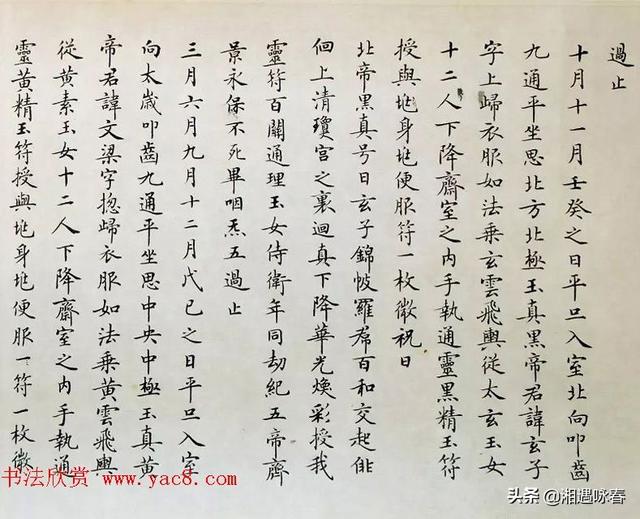 過止
十月十一月壬癸之日平旦入室北向叩齒
九通平坐思北方北極玉真黑帝君諱玄子
字上歸衣服如法乘玄雲飛輿從太玄玉女
十二人下降齋室之内手執通靈黑精玉符
授與兆身兆便服符一枚微祝曰
北帝黑真号曰玄子錦帔羅帬百和交起俳
佪上清瓊宫之裏迴真下降華光煥彩授我
靈符百關通理玉女侍衛年同劫紀五帝齊
景永保不死畢咽炁五過止
三月六月九月十二月戊巳之日平旦入室
向太歲叩齒九通平坐思中央中極玉真黄
帝君諱文梁字揔歸衣服如法乘黄雲飛輿
從黄素玉女十二人下降齋室之内手執通
靈黄精玉符授與兆身兆便服一符一枚微
书法欣赏 www.yac8.com
头条 @湘遇咏春